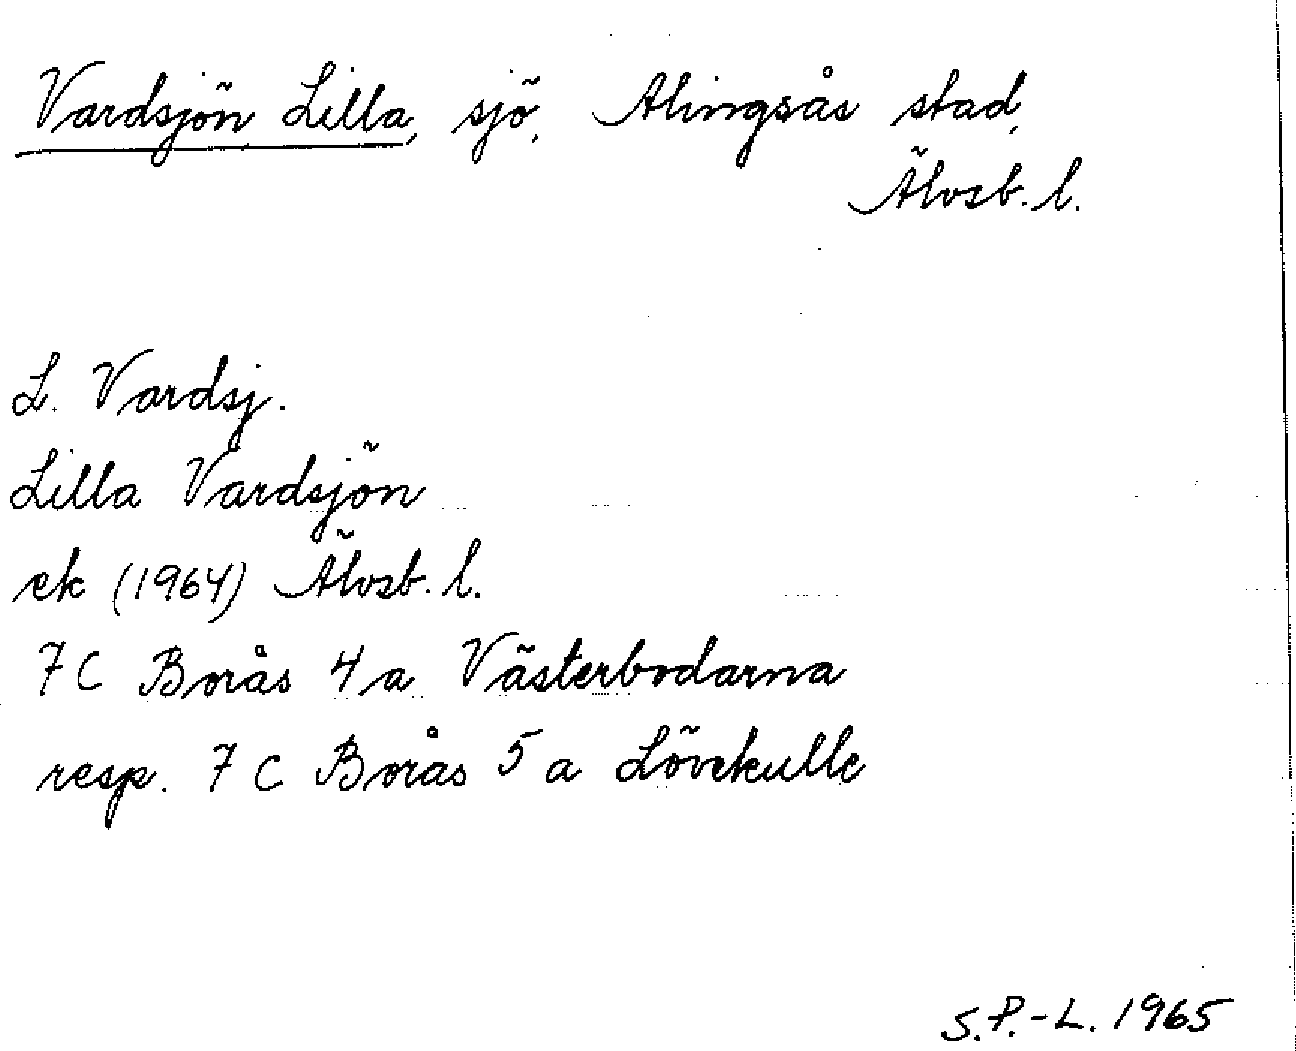 Vardsjön Lilla, sjö, Alingsås stad,
Älvsb. l.
L. Vardsj.
Lilla Vardsjön
ek (1964) Älvsb. l.
7 C Borås 4 a Västerbodarna
resp. 7 C Borås 5 a Lövekulle
S.P.-L. 1965